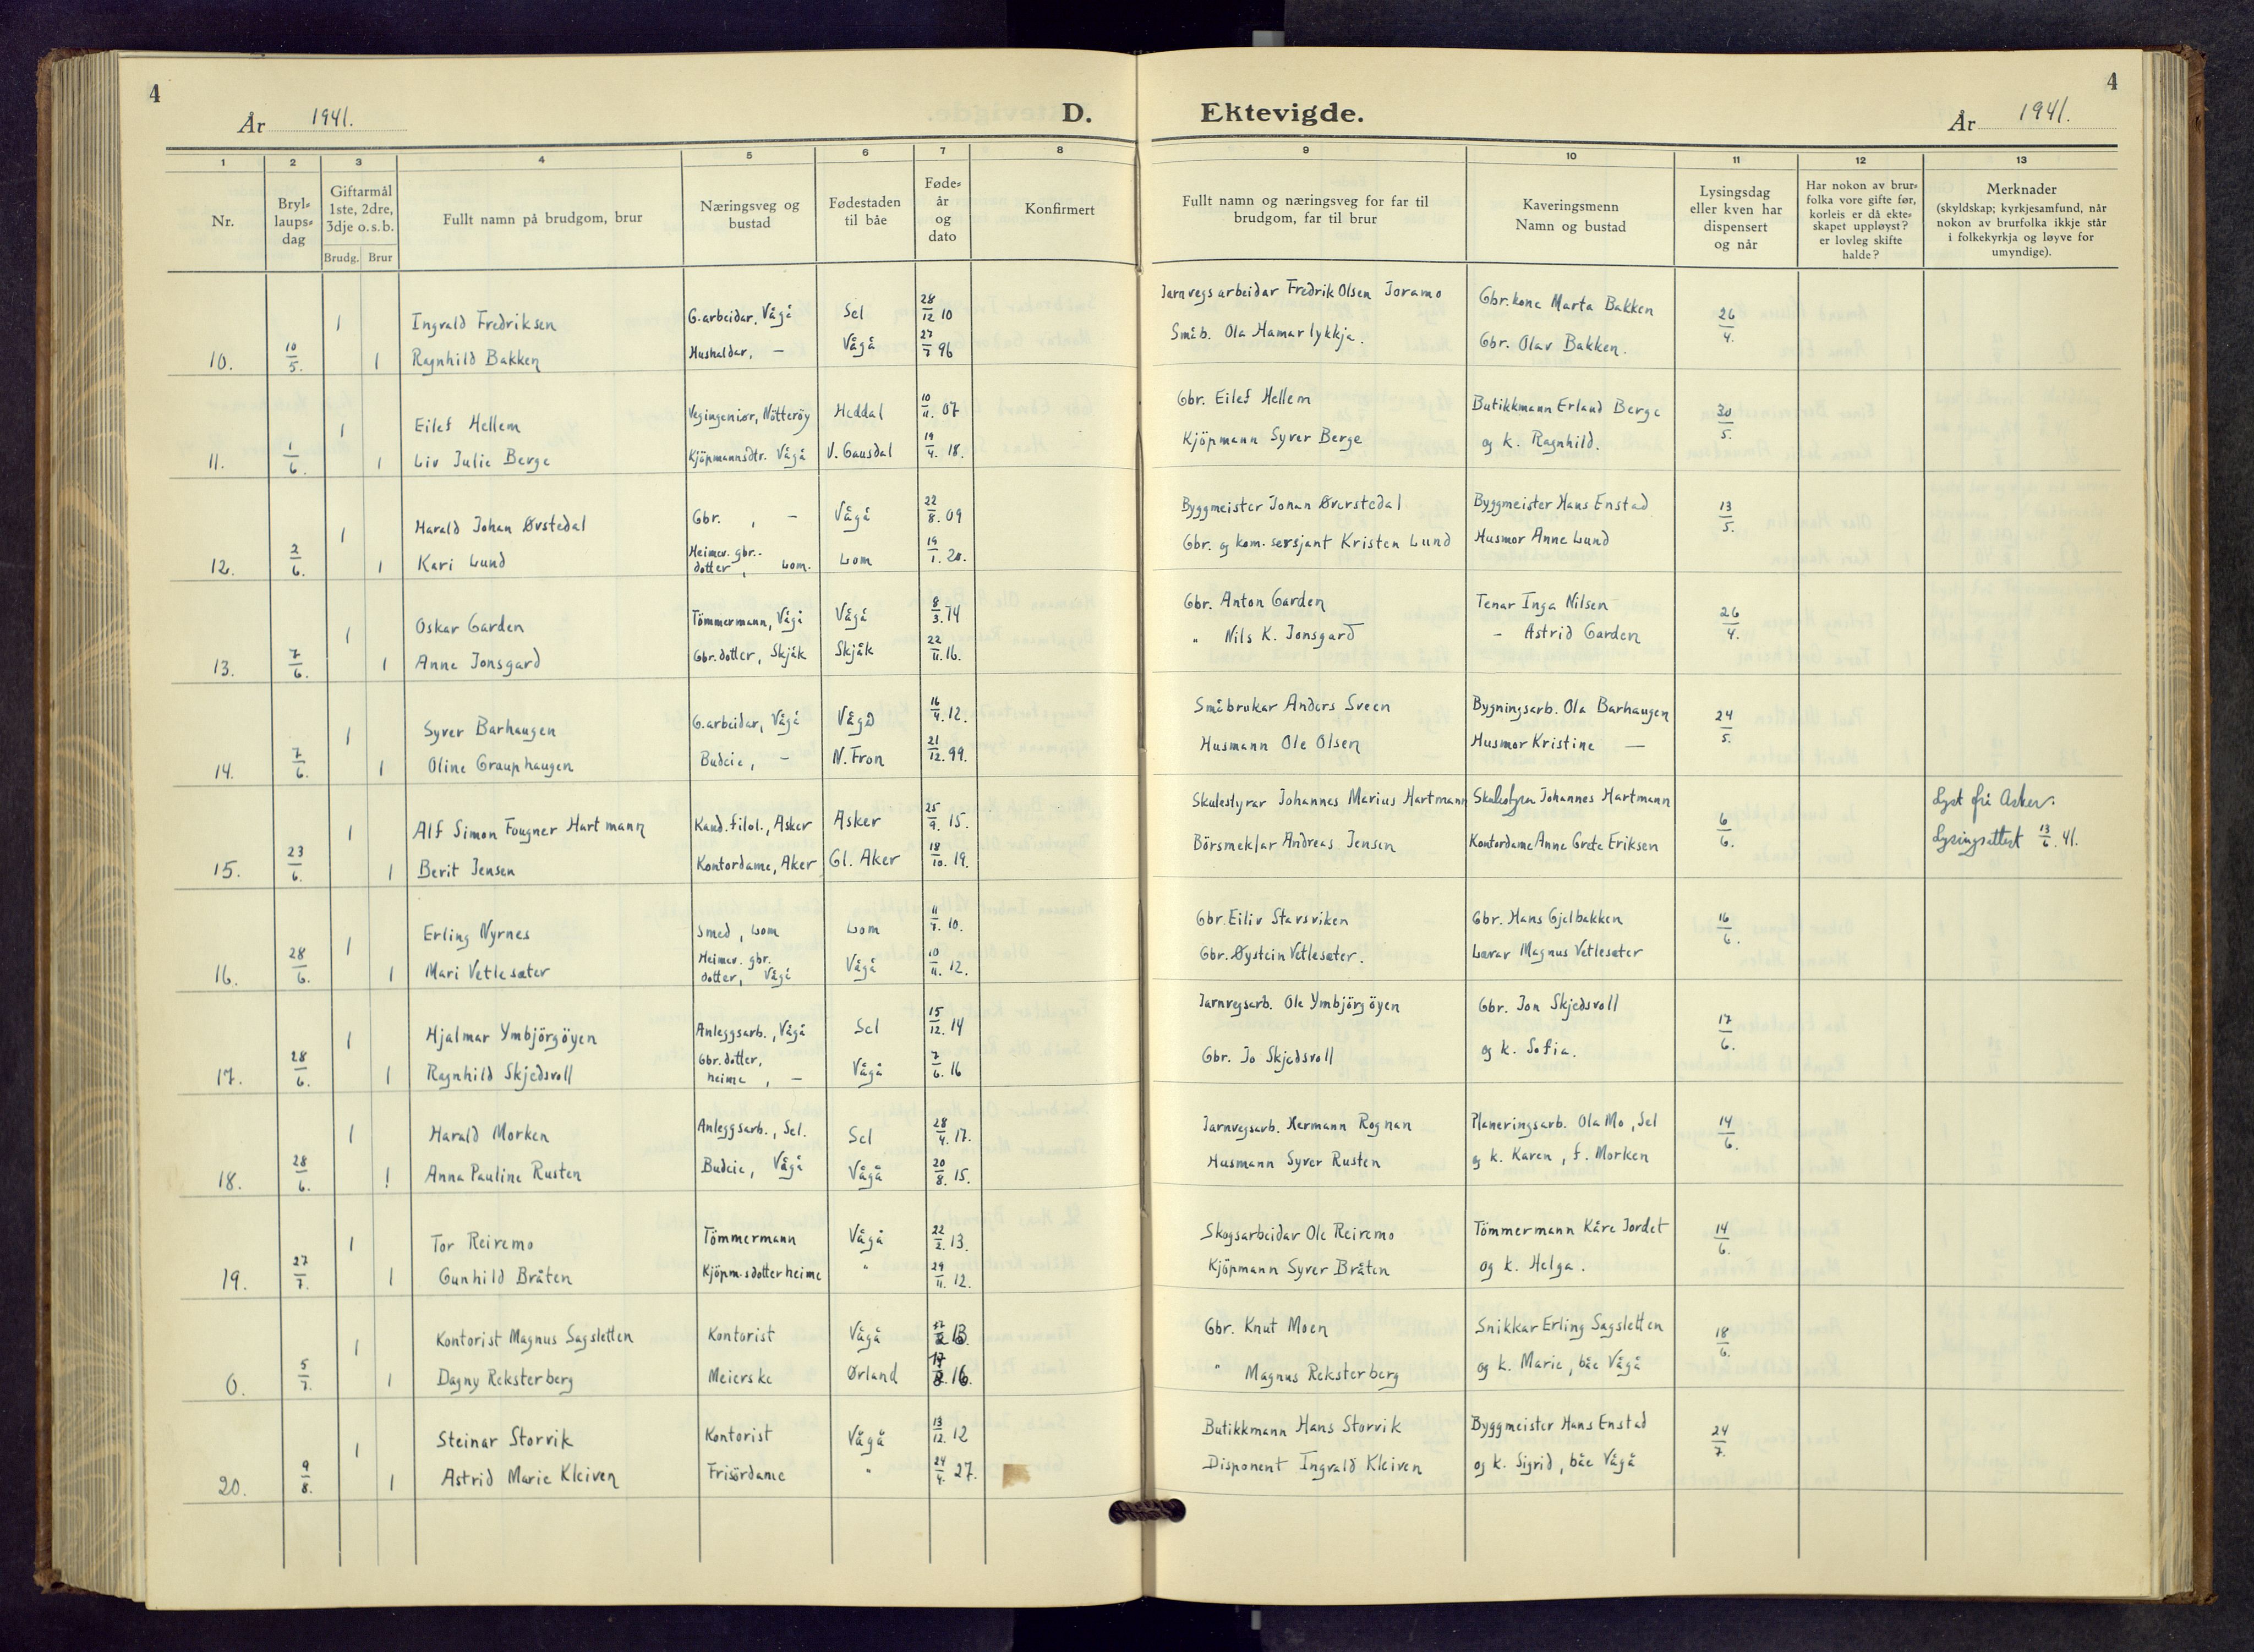 4
År 1941.
D.
Ektevigde.
År 1941.
4
1 2 3 4 5 6 7 8 9 10 11 12 13
Nr.
Bryl-
laups-
dag
Giftarmål
1ste, 2dre,
3dje o.s.b.
Brudg. Brur
Fullt namn på brudgom, brur
Næringsveg og
bustad
Fødestaden
til båe
Føde-
år
og
dato
Konfirmert
Fullt namn og næringsveg for far til
brudgom, far til brur
Kaveringsmenn
Namn og bustad
Lysingsdag
eller kven har
dispensert
og når
Har nokon av brur-
folka vore gifte før,
korleis er då ekte-
skapet uppløyst?
er lovleg skifte
halde?
Merknader
(skyldskap; kyrkjesamfund, når
nokon av brurfolka ikkje står
i folkekyrkja og løyve for
umyndige).
1 Ingvald Fredriksen G.arbeidar, Vågå Sel 28/12 10 Jarnvegsarbeidar Fredrik Olsen Joramo Gbr.kone Marta Bakken 26/4.
10. 10/5. 1 Ragnhild Bakken Hushaldar, — Vågå 27/7 96 Småb. Ola Hamarlykkja. Gbr. Olav Bakken.
1 Eilef Hellem Vegingeniør, Nötteröy Heddal 10/11. 07 Gbr. Eilef Hellem Butikkmann Erland Berge 30/5.
11. 1/6. 1 Liv Julie Berge Kjöpmannsdtr. Vågå V. Gausdal 19/4. 18. Kjöpmann Syver Berge og k. Ragnhild.
1 Harald Johan Øvstedal Gbr. , — Vågå 22/8. 09 Byggmeister Johan Øverstedal Byggmeister Hans Enstad 13/5.
12. 2/6. 1 Kari Lund Heimev. gbr.-
dotter, Lom. Lom 19/1. 20. Gbr. og kom. sersjant Kristen Lund Husmor Anne Lund
1 Oskar Garden Tömmermann, Vågå Vågå 8/3. 14 Gbr. Anton Garden Tenar Inga Nilsen 26/4.
13. 7/6. 1 Anne Jonsgard Gbr.dotter, Skjåk Skjåk 22/11. 16. " Nils K. Jonsgard — Astrid Garden
1 Syver Barhaugen G.arbeidar, Vågå Vågå 16/4. 12. Småbrukar Anders Sveen Bygningsarb. Ola Barhaugen 24/5.
14. 7/6. 1 Oline Grauphaugen Budeie, — N. Fron 21/12. 99. Husmann Ole Olsen Husmor Kristine —
1 Alf Simon Fougner Hartmann Kand. filol., Asker Asker 25/9. 15. Skulestyrar Johannes Marius Hartmann Skulestyrar Johannes Hartmann 6/6. Lyst frå Asker.
15. 23/6. 1 Berit Jensen Kontordame, Aker Gl. Aker 18/10. 19. Börsmeklar Andreas Jensen Kontordame Anne Grete Eriksen Lysingsattest 13/6. 41.
1 Erling Nyrnes Smed, Lom Lom 11/7. 10. Gbr. Eiliv Stavsviken Gbr. Hans Gjelbakken 16/6.
16. 28/6. 1 Mari Vetlesæter Heimev. gbr.
dotter, Vågå Vågå 10/11. 12. Gbr. Øystein Vetlesæter. Lærar Magnus Vetlesæter
1 Hjalmar Ymbjörgöyen Anleggsarb., Vågå Sel 15/12. 14 Jarnvegsarb. Ole Ymbjörgöyen Gbr. Jon Skjedsvoll 17/6.
17. 28/6. 1 Ragnhild Skjedsvoll Gbr.dotter,
heime, — Vågå 7/6. 16 Gbr. Jo Skjedsvoll og k. Sofia.
1 Harald Morken Anleggsarb., Sel. Sel 28/4. 17. Jarnvegsarb. Hermann Rognan Planeringsarb. Ola Mo, Sel 14/6.
18. 28/6. 1 Anna Pauline Rusten Budeie, Vågå Vågå 20/8. 15. Husmann Syver Rusten og k. Karen, f. Morken
1 Tor Reiremo Tömmermann Vågå 22/2. 13. Skogsarbeidar Ole Reiremo Tömmermann Kåre Jordet 14/6.
19. 27/7. 1 Gunhild Bråten Kjöpm.sdotter heime " 29/11. 12. Kjöpmann Syver Bråten og k. Helga.
1 Kontorist Magnus Sagsletten Kontorist Vågå 13. Gbr. Knut Moen Snikkar Erling Sagsletten 18/6.
0. 5/7. 1 Dagny Reksterberg Meierske Ørland 16. " Magnus Reksterberg og k. Marie, båe Vågå
1 Steinar Storvik Kontorist Vågå 13/12. 12 Butikkmann Hans Storvik Byggmeister Hans Enstad 24/7.
20. 9/8. 1 Astrid Marie Kleiven Frisördame " 24/4. 27. Disponent Ingvald Kleiven og k. Sigrid, båe Vågå